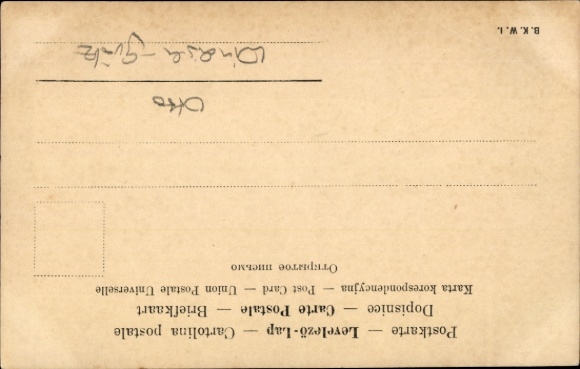 Postkarte — Levelező-Lap — Cartolina postale
Dopisnice — Carte Postale — Briefkaart
Karta korespondencyjna — Post Card — Union Postale Universelle
Открытое письмо
Otto
Windisch-Grätz
B. K. W. I.